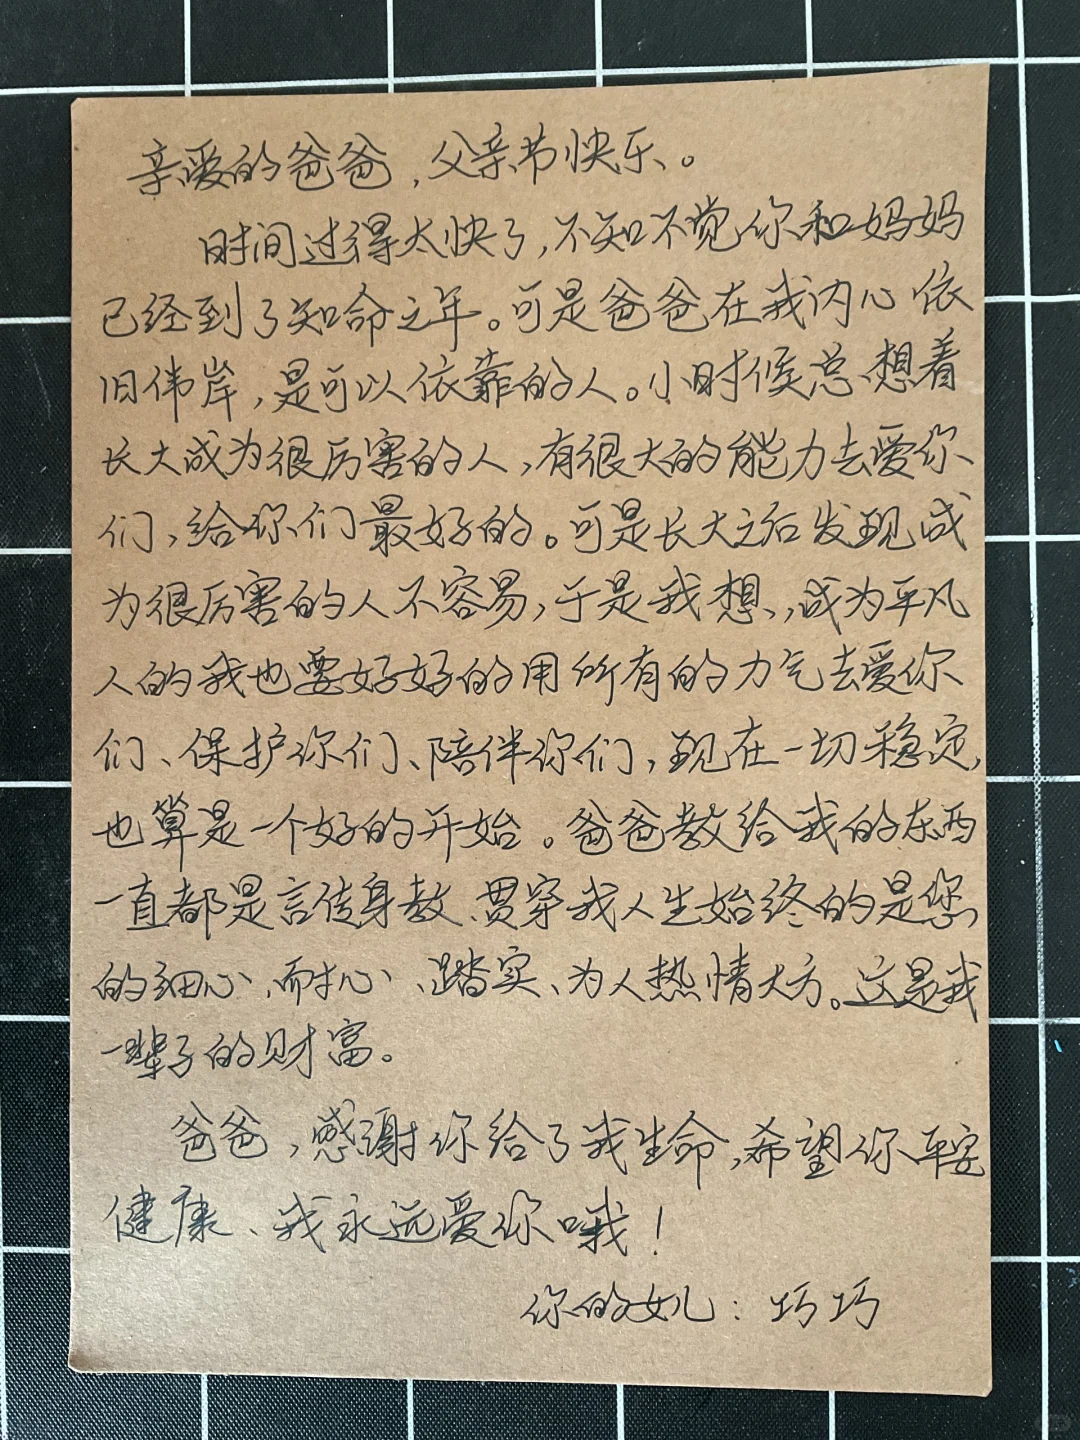 亲爱的爸爸，父亲节快乐。
时间过得太快了，不知不觉你和妈妈
已经到了知命之年。可是爸爸在我内心依
旧伟岸，是可以依靠的人。小时候总想着
长大成为很厉害的人，有很大的能力去爱你
们，给你们最好的。可是长大之后发现成
为很厉害的人不容易，于是我想，成为平凡
人的我也要好好的用所有的力气去爱你
们、保护你们、陪伴你们，现在一切稳定，
也算是一个好的开始。爸爸教给我的东西
一直都是言传身教、贯穿我人生始终的是您
的细心、耐心、踏实、为人热情大方。这是我
一辈子的财富。
爸爸，感谢你给了我生命，希望你平安
健康、我永远爱你哦！
你的女儿：巧巧